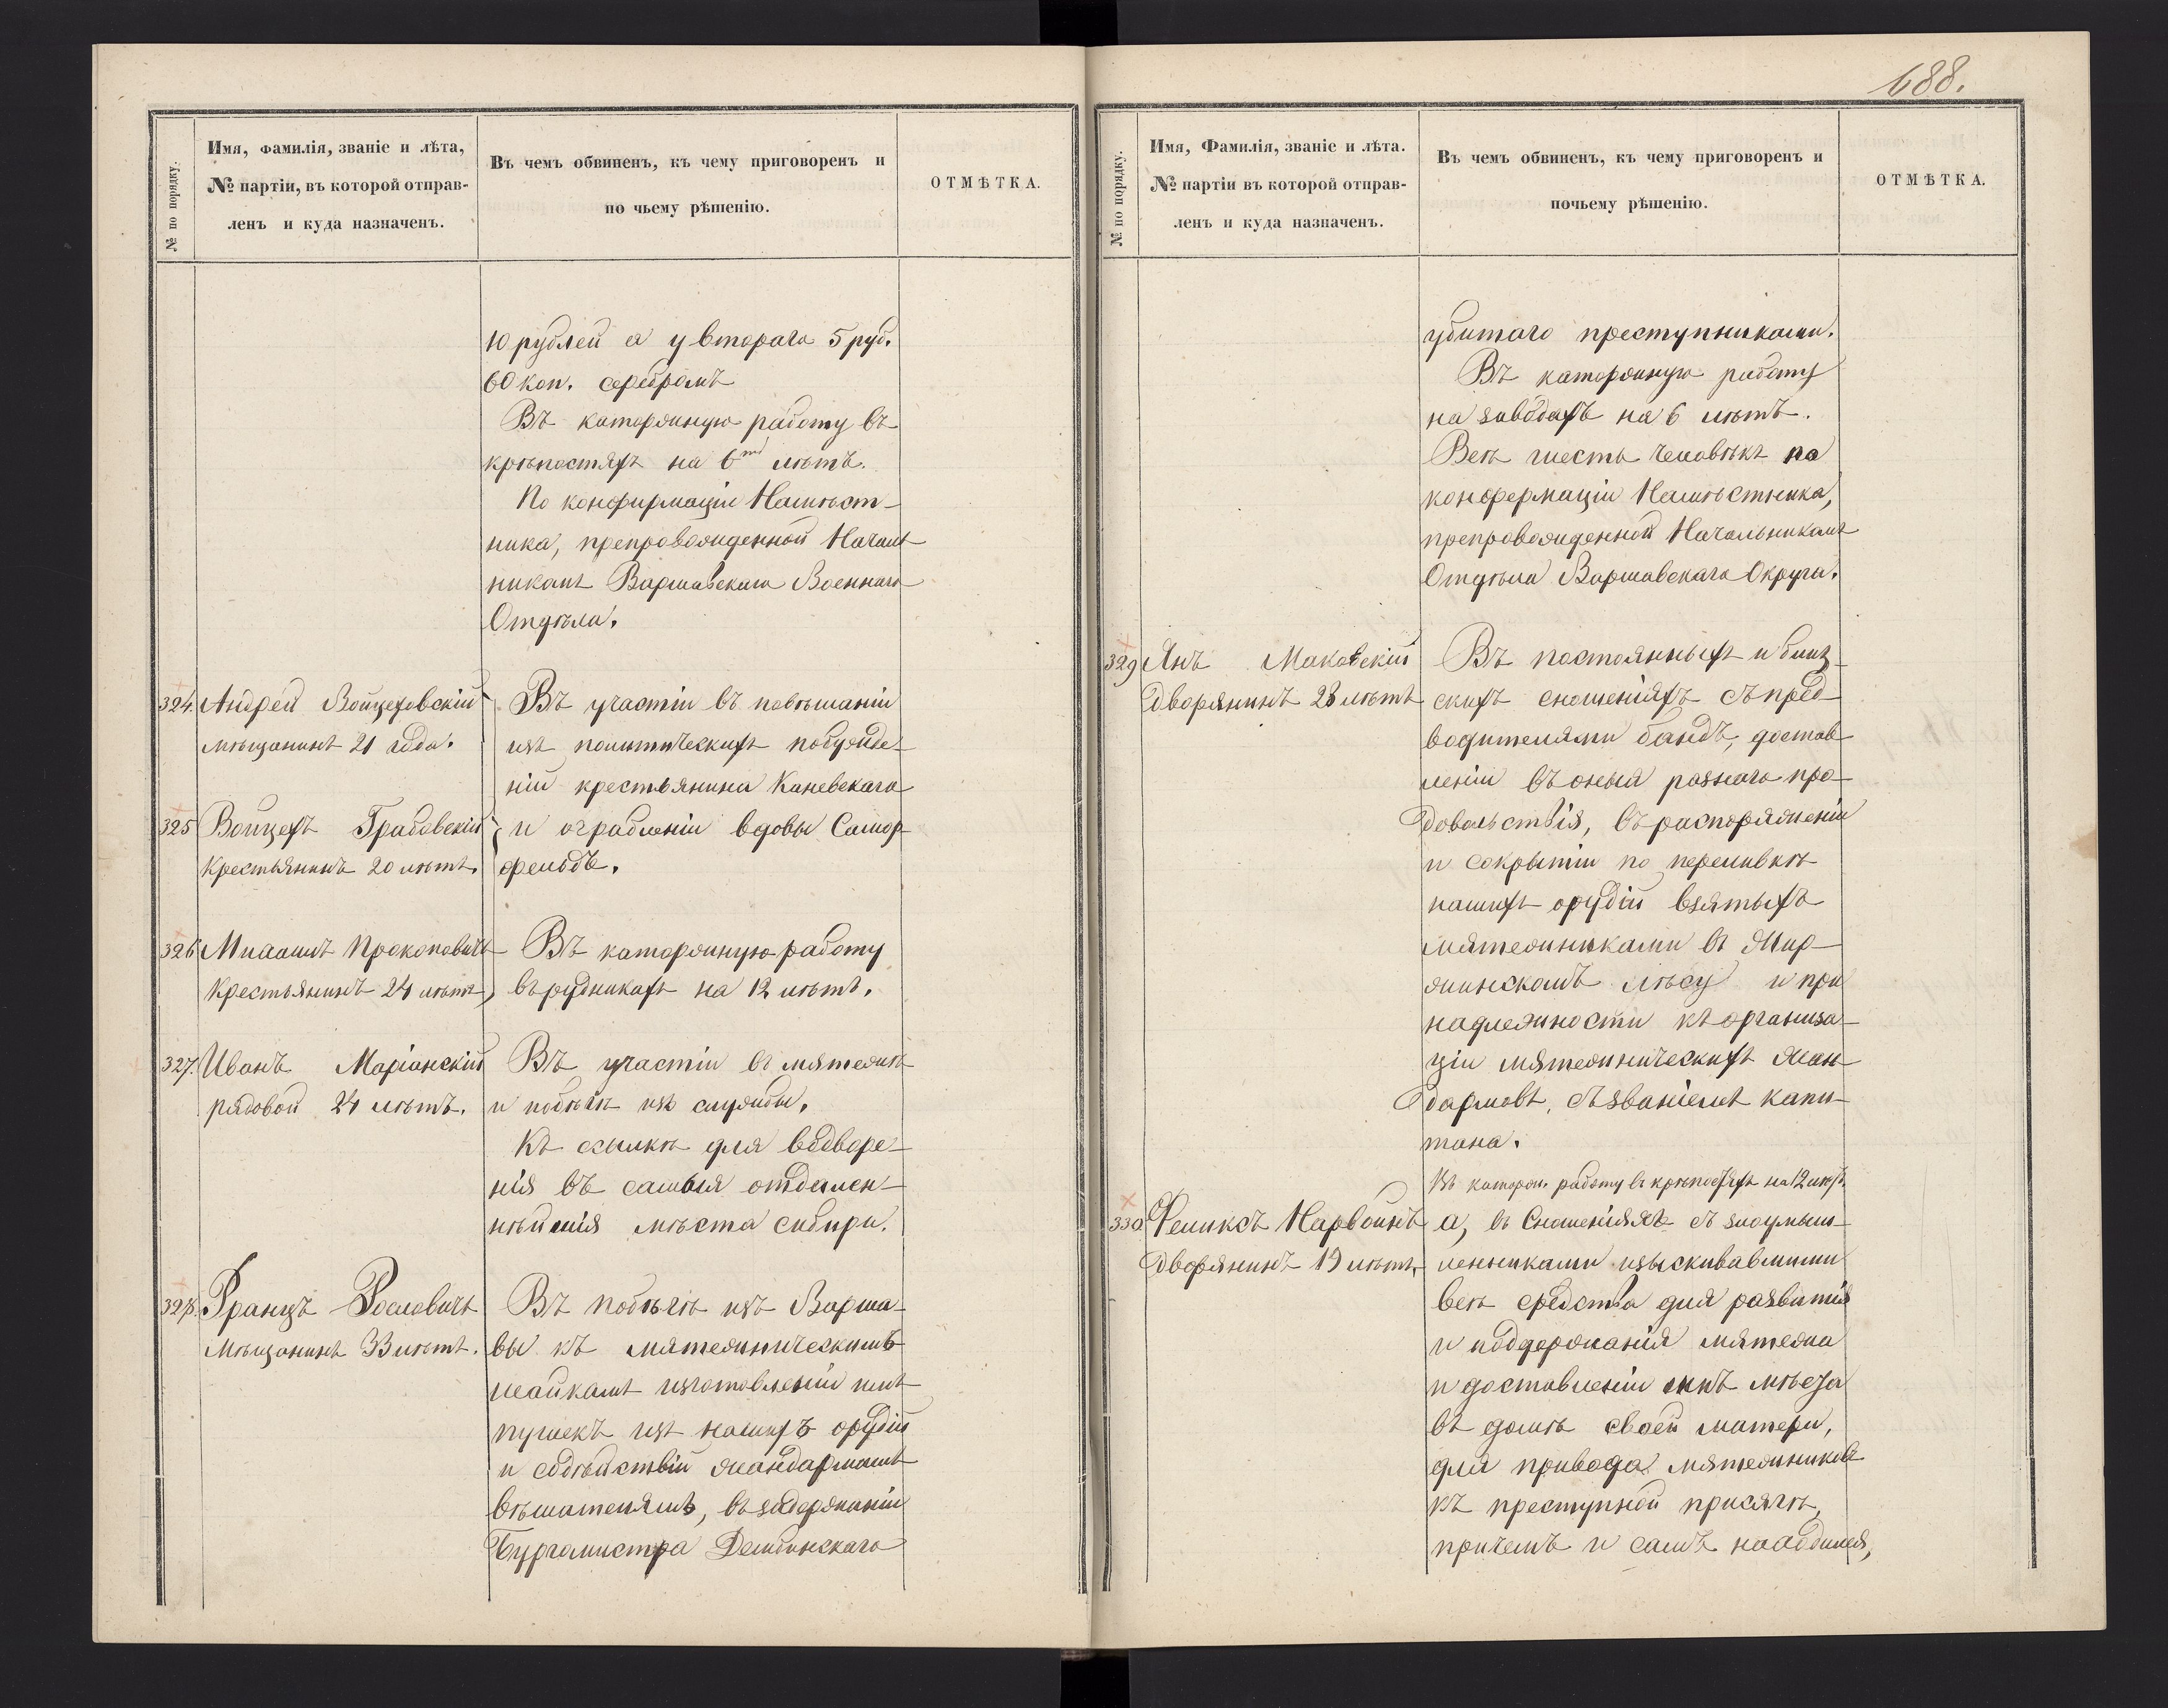 № по порядку.
Имя, фамилія, званіе и лѣта,
№ партіи, въ которой отправ-
ленъ и куда назначенъ.
Въ чемъ обвиненъ, къ чему приговоренъ и
по чьему рѣшенію.
ОТМѢТКА.
10 рублей а у втораго 5 руб.
60 коп. серебромъ
Въ каторжную работу въ
крѣпостяхъ на 6 лѣтъ.
По конфирмаціи Намѣст-
ника, препровожденной Началь-
никомъ Варшавскаго Военнаго
Отдѣла.
324. Андрей Войцеховскій
мѣщанинъ 21 года.
Въ участіи въ повѣшаніи
изъ политическихъ побужде-
ній крестьянина Каневскаго
325 Войцехъ Грабовскій
Крестьянинъ 20 лѣтъ.
и ограбленіи вдовы Самор-
фельдъ.
326 Михаилъ Прокоповичъ
Крестьянинъ 24 лѣтъ
Въ каторжную работу
въ рудникахъ на 12 лѣтъ.
327. Иванъ Маріанскій
рядовой 24 лѣтъ.
Въ участіи въ мятежѣ
и побѣгѣ изъ службы.
Къ ссылкѣ для водворе-
нія въ самыя отдален-
нѣйшія мѣста сибири.
328. Францъ Рословичъ
Мѣщанинъ 33 лѣтъ.
Въ побѣгѣ изъ Варша-
вы къ мятежническимъ
шайкамъ изготовленіи имъ
пушекъ изъ нашихъ орудій
и содѣйствіи жандармамъ
вѣшателямъ, въ задержаніи
Бургомистра Дембинскаго
688.
№ по порядку.
Имя, Фамилія, званіе и лѣта.
№ партіи въ которой отправ-
ленъ и куда назначенъ.
Въ чемъ обвиненъ, къ чему приговоренъ и
почьему рѣшенію.
ОТМѢТКА.
убитаго преступниками.
Въ каторжную работу
на заводахъ на 6 лѣтъ.
Всѣ шесть человѣкъ по
конфермаціи Намѣстника,
препровожденной Начальникомъ
Отдѣла Варшавскаго Округа.
329 Янъ Маковскій
Дворянинъ 28 лѣтъ
Въ постоянныхъ и близ-
скихъ сношеніяхъ съ пред-
водителями бандъ, достав-
леніи въ оныя разнаго про-
довольствія, въ распоряженіи
и сокрытіи по переливкѣ
нашихъ орудій взятыхъ
мятежниками въ Мир-
жинскомъ лѣсу и при
надлежности къ организа-
ціи мятежническихъ жан-
дармовъ, съ званіемъ капи-
тана.
Въ каторж. работу въ крѣпостяхъ на 12 лѣтъ.
330. Феликсъ Нарвоинъ
Дворянинъ 19 лѣтъ,
а, въ Сношеніяхъ съ злоумыш-
ленниками изыскивавшими
всѣ средства для развитія
и поддержанія мятежа
и доставленіи имъ мѣста
въ домѣ своей матери,
для привода мятежниковъ
къ преступной присягѣ,
причемъ и самъ находился,